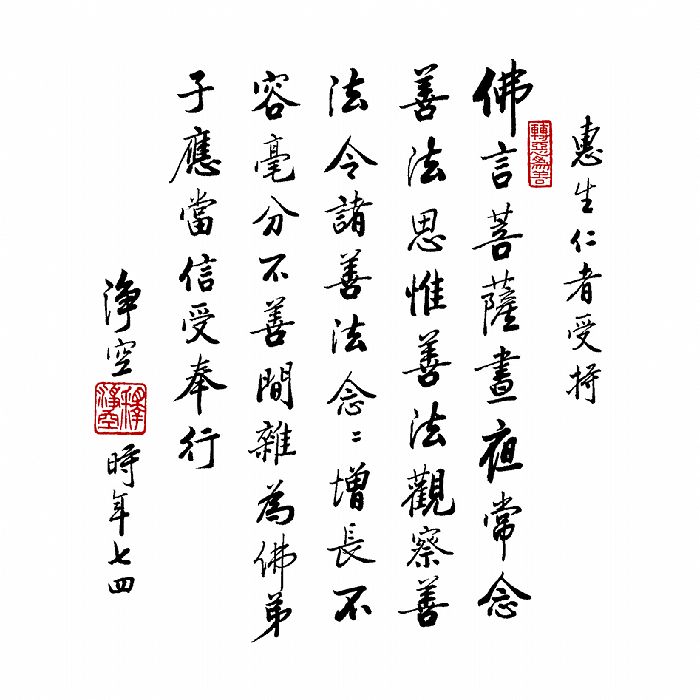 惠生仁者受持
轉惡為善
佛言菩薩晝夜常念
善法思惟善法觀察善
法令諸善法念〻增長不
容毫分不善間雜為佛弟
子應當信受奉行
淨空
釋淨空
時年七四